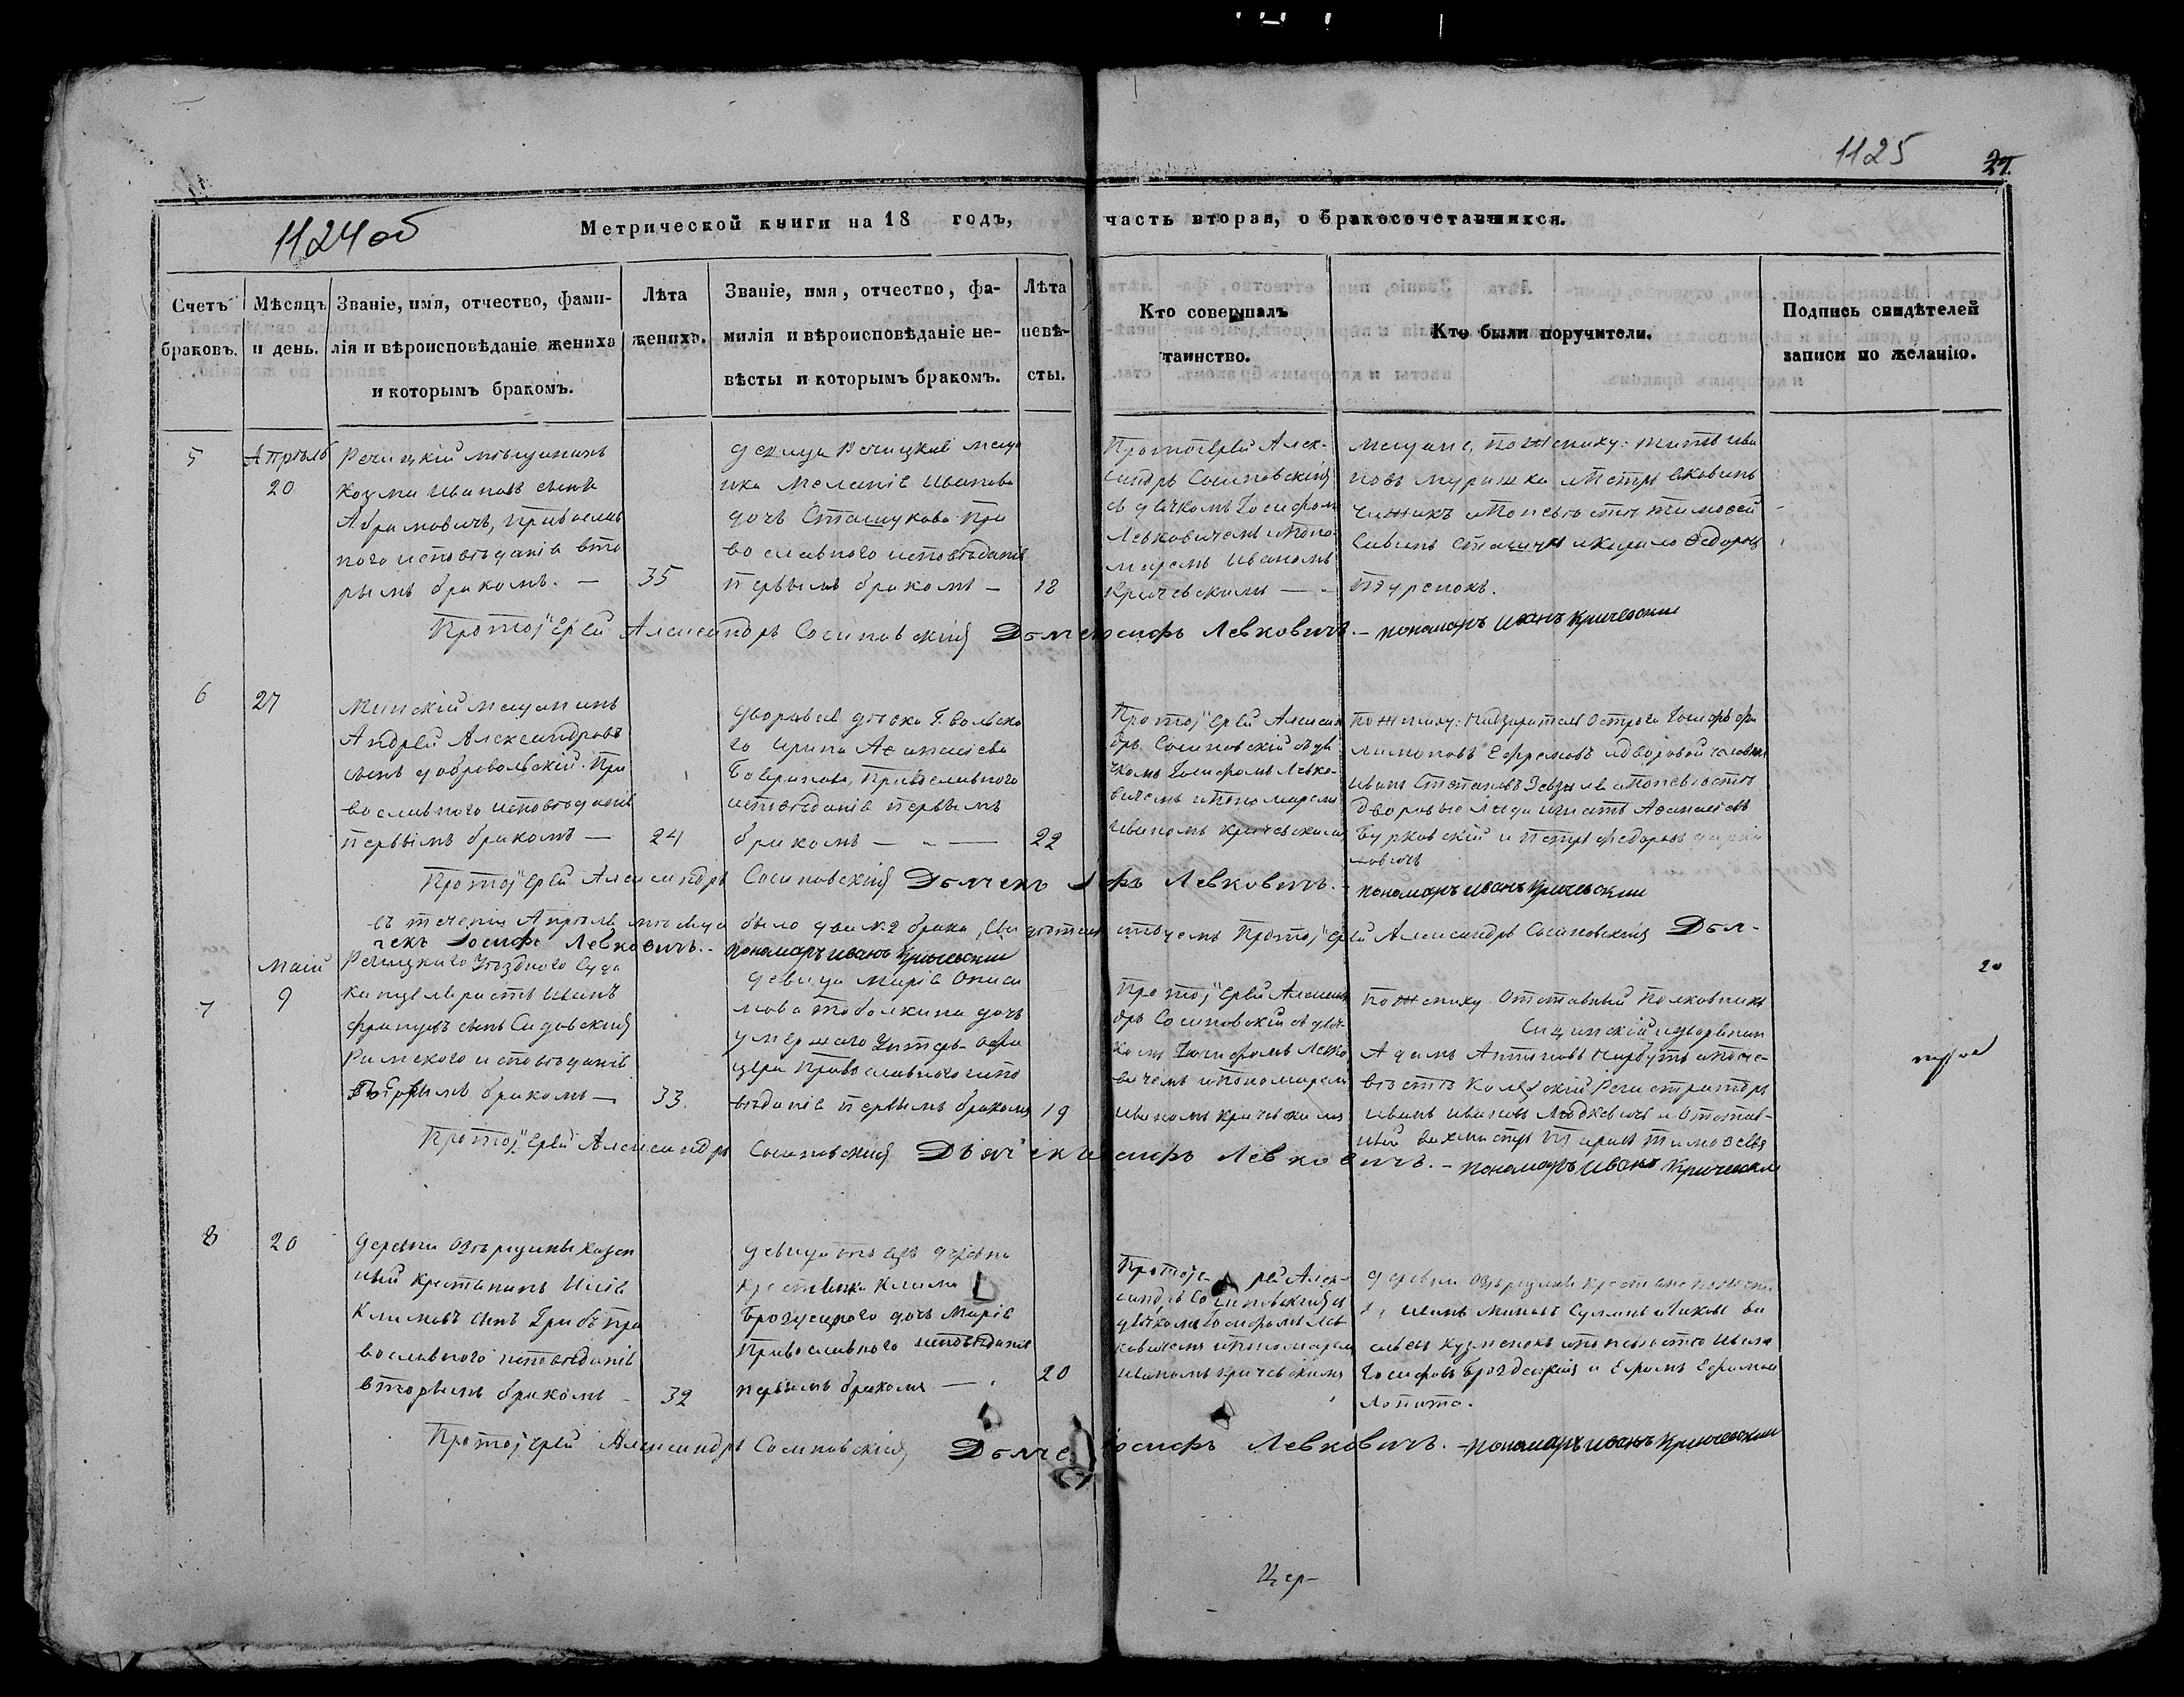 1125
27.
1124 об
Метрической книги на 18 годъ, часть вторая, о бракосочетавшихся.
Счетъ браковъ.
Мѣсяцъ и день.
Званіе, имя, отчество, фами-
лія и вѣроисповѣданіе жениха
и которымъ бракомъ.
Лѣта
жениха.
Званіе, имя, отчество, фа-
милія и вѣроисповѣданіе не-
вѣсты и которымъ бракомъ.
Лѣта
невѣ-
сты.
Кто совершалъ
таинство.
Кто были поручители.
Подпись свидѣтелей
записи по желанію.
5
Апрѣль
20
Речицкій мѣщанинъ
Козма Ивановъ сынъ
Абрамовичъ, Православ
ного исповѣданія вто
рымъ бракомъ. —
35
девица Речицкая меща
нка Меланія Иванова
дочь Сташукова Пра
вославного исповѣданія
первымъ бракомъ —
18
Протоіерей Алек-
сандръ Сосиновскій
съ дячкомъ Іосифом
Левковичемъ и Поно-
маремъ Иваномъ
Кричевскимъ —
мещане, по жениху: Титъ Ива
новъ и Петръ
и по невѣсте Тимофей
Савинъ и Федоровъ
Протоіерей Александръ Сосиновскій Дьячекъ Іосифъ Левковичъ. — пономаръ Иванъ Кричевскии
6
27
Минскій мещанинъ
Андрей Александровъ
сынъ Добровольскій. Пра
вославного исповѣданія
первымъ бракомъ —
24
дворовая девка Г. Вольско
го Ирина Афанасіева
Православного
исповѣданія первымъ
бракомъ — „ —
22
Протоіерей Алексан
дръ Сосиновскій съ дя
чкомъ Іосифомъ Левко-
вичемъ и Пономаремъ
Иваномъ Кричевскимъ
по жениху: Надзиратель Острога Іосифъ Фи
лимоновъ Ефремовъ и дворовой человекъ
Иванъ Степановъ и по невѣсте
дворовые люди Игнатъ Афанасіевъ
Бурковскій и Петръ Федоровъ
Протоіерей Александръ Сосиновскій Дьячекъ Іосифъ Левковичъ. — пономаръ Иванъ Кричевскии
въ теченіи Апрѣля мѣсяца было два №. 2 брака, Свидѣтельствуемъ Протоіерей Александръ Сосиновскій Дья-
чекъ Іосифъ Левковичъ. — пономаръ Иванъ Кричевскии
7
Маій
9
Речицкого Уѣздного Суда
Канцеляристъ Иванъ
Францовъ сынъ Садовскій
Римского исповѣданія
Первымъ бракомъ —
33.
девица Марія Описи
мова Тоболкина дочь
умершого Унтеръ-Офи
цера Православного испо
вѣданія первымъ бракомъ
19
Протоіерей Алексан
дръ Сосиновскій съ дяч-
комъ Іосифомъ Левко
вичемъ и Пономаремъ
Иваномъ Кричевскимъ
по жениху Отставный Полковникъ
и дворянин
Адамъ Антоновъ Нарбутъ и по не-
вѣсте Колежскій Регистраторъ
Иванъ Ивановъ и Отстав-
ный вахмистръ Тимофеевъ
20
Протоіерей Александръ Сосиновскій Дьячекъ Іосифъ Левковичъ. — пономаръ Иванъ Кричевскии
8
20
деревни Озерщины казен
ный крестьянинъ Исаія
Климовъ сынъ Грибъ пра
вославного исповѣданія
вторымъ бракомъ —
32
девица той же деревни
крестьянка Клима
дочь Марія
Православного исповѣданія
первымъ бракомъ —
20
Протоіерей Алек-
сандръ Сосиновскій съ
дячкомъ Іосифомъ Лев
ковичемъ и Пономаремъ
Иваномъ Кричевскимъ
деревни Озерщины крестьяне по жени
и Яковъ Ва
сильевъ Кузменокъ и по невѣсте Иванъ
Іосифовъ и Ефремъ Ефремовъ
Лопата.
Протоіерей Александръ Сосиновскій Дьячекъ Іосифъ Левковичъ. — пономаръ Иванъ Кричевскии
Цер-